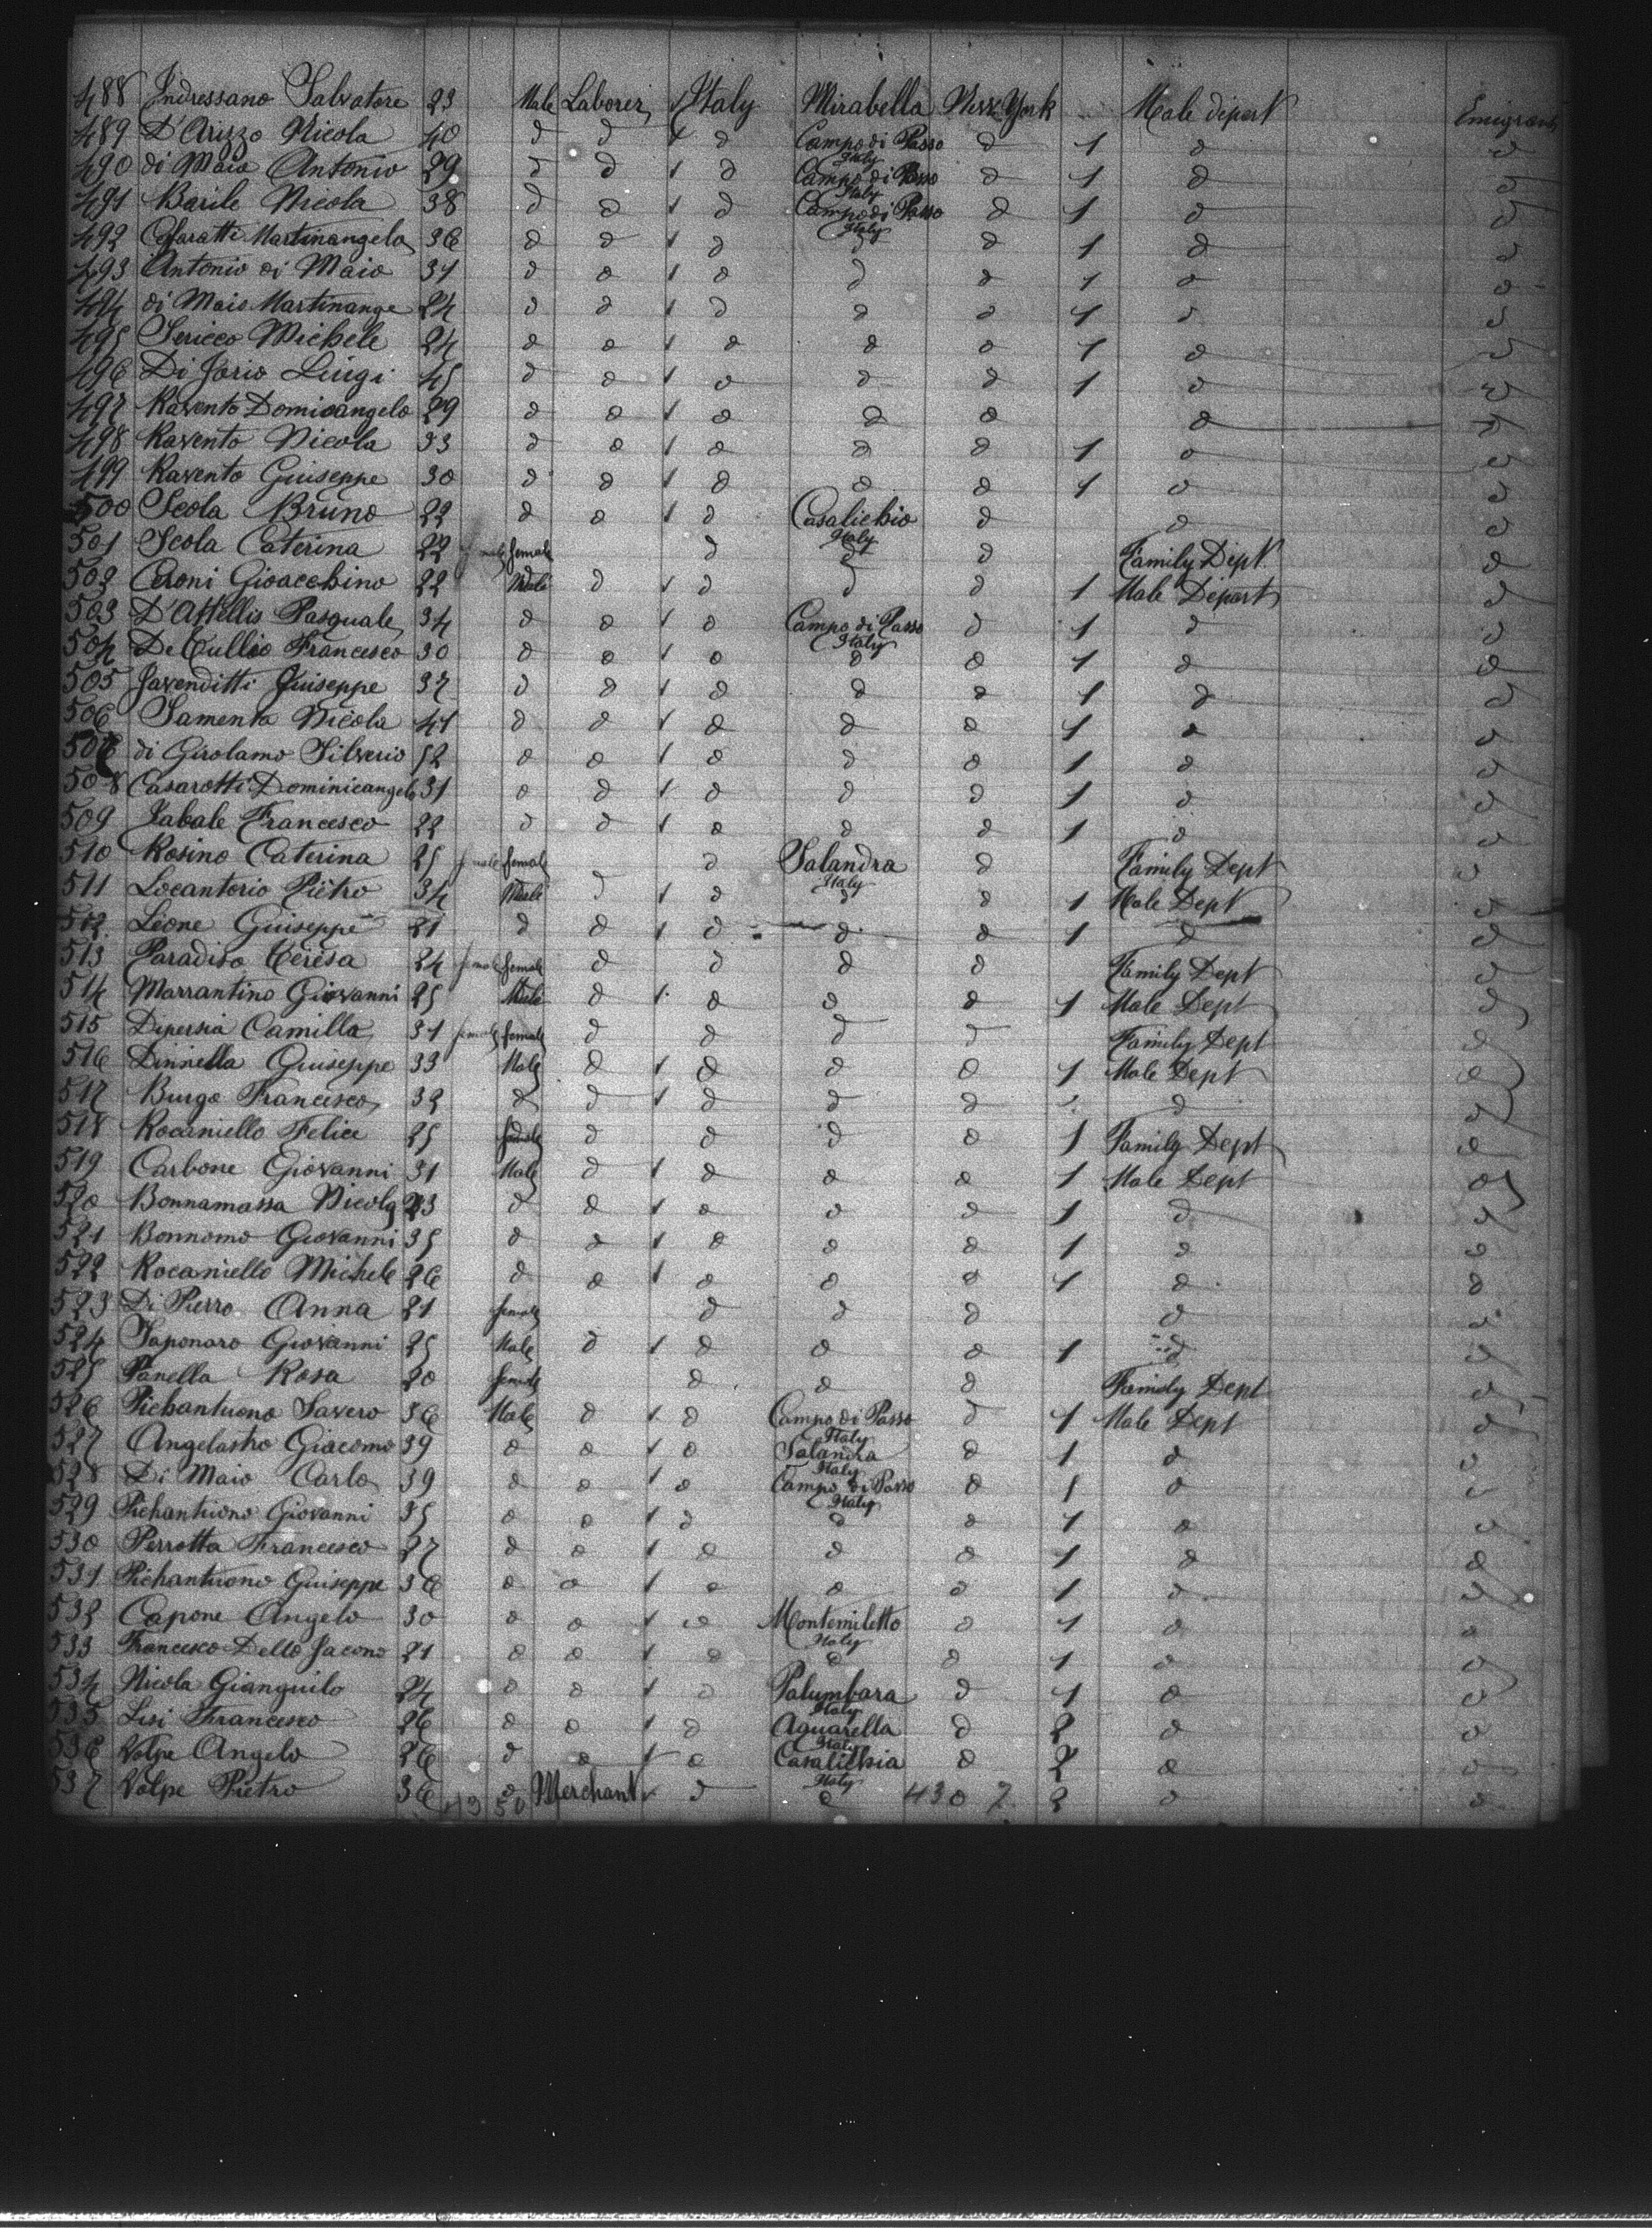 488 Indressano Salvatore 23 Male Laborer Italy Mirabella New York Male depart Emigrant
489 D'Arizzo Nicola 40 d d 1 d Campo di Passo Italy d 1 d d
490 di Maio Antonio 29 d d 1 d Campo di Passo Italy d 1 d d
491 Barile Nicola 38 d d 1 d Campo di Passo Italy d 1 d d
492 Martinangelo 36 d d 1 d d d 1 d d
493 Antonio di Maio 31 d d 1 d d d 1 d d
494 di Maio Martinange 24 d d 1 d d d 1 d d
495 Sericco Michele 24 d d 1 d d d 1 d d
496 Di Jorio Luigi 45 d d 1 d d d 1 d d
497 Ravento Domicangelo 29 d d 1 d d d d d
498 Ravento Nicola 33 d d 1 d d d 1 d d
499 Ravento Guiseppe 30 d d 1 d d d 1 d d
500 Scola Bruno 22 d d 1 d Casalichio Italy d d d
501 Scola Caterina 22 female female d d d Family Dept. d
502 Caoni Gioacchino 22 Male d 1 d d d 1 Male Depart d
503 D'Attellis Pasquale 34 d d 1 d Campo di Passo Italy d 1 d d
504 De Cullio Francesco 30 d d 1 d d d 1 d d
505 Javenditti Guiseppe 37 d d 1 d d d 1 d d
506 Samenta Nicola 41 d d 1 d d d 1 d d
507 di Girolamo Silverio 52 d d 1 d d d 1 d d
508 Casarotti Dominicangelo 31 d d 1 d d d 1 d d
509 Jabale Francesco 22 d d 1 d d d 1 d d
510 Rosino Caterina 25 female female d Salandra Italy d Family Dept d
511 Locantorio Pietro 34 Male d 1 d d d 1 Male Dept d
512 Leone Guiseppe 21 d d 1 d d d 1 d d
513 Paradiso Teresa 24 female female d d d d Family Dept d
514 Marrantino Giovanni 25 Male d 1 d d d 1 Male Dept d
515 Dipersia Camilla 31 female female d d d d Family Dept d
516 Dinnella Guiseppe 33 Male d 1 d d d 1 Male Dept d
517 Burgo Francesco 32 d d 1 d d d d d
518 Rocaniello Felice 25 female d d d d 1 Family Dept d
519 Carbone Giovanni 31 Male d 1 d d d 1 Male Dept d
520 Bonnamassa Nicola 23 d d 1 d d d 1 d d
521 Bonnomo Giovanni 35 d d 1 d d d 1 d d
522 Rocaniello Michele 26 d d 1 d d d 1 d d
523 Di Pierro Anna 21 female d d d d d
524 Saponaro Giovanni 25 Male d 1 d d d 1 d d
525 Panella Rosa 20 female d d d Family Dept d
526 Pichantuono Savero 36 Male d 1 d Campo di Passo Italy d 1 Male Dept d
527 Angelastro Giacomo 39 d d 1 d Salandra Italy d 1 d d
528 Di Maio Carlo 39 d d 1 d Campo di Passo Italy d 1 d d
529 Pichantuono Giovanni 35 d d 1 d d d 1 d d
530 Perrotta Francesco 27 d d 1 d d d 1 d d
531 Pichantuono Guiseppe 36 d d 1 d d d 1 d d
532 Capone Angelo 30 d d 1 d Montemiletto Italy d 1 d d
533 Francesco Dello Jacono 21 d d 1 d d d 1 d d
534 Nicola Gianguilo 24 d d 1 d Palumbara Italy d 1 d d
535 Lisi Francesco 26 d d 1 d Aquarella Italy d 2 d d
536 Volpe Angelo 26 d d 1 d Casalichia Italy d 2 d d
537 Volpe Pietro 36 d Merchant d d 2 d d
430 7